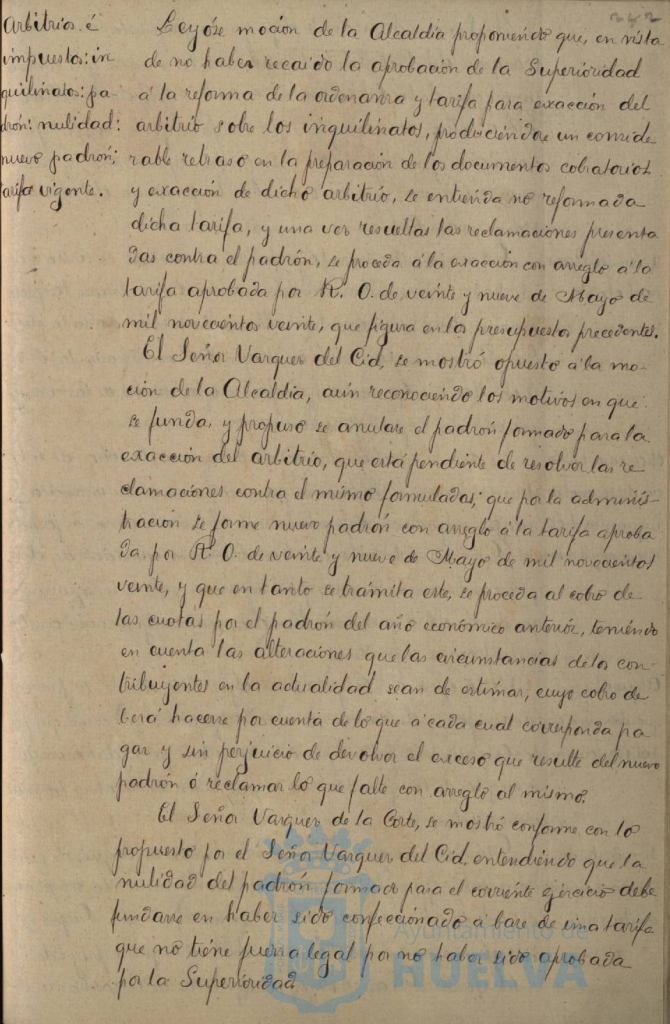 242
Arbitrios é
impuestos: in
quilinatos: pa-
drón: nulidad:
nuevo padrón;
tarifa vigente.
Leyóse moción de la Alcaldía proponiendo que, en vista
de no haber recaido la aprobación de la Superioridad
á la reforma de la ordenanza y tarifa para exacción del
arbitrio sobre los inquilinatos, produciéndose un conside
rable retraso en la preparación de los documentos cobratorios
y exacción de dicho arbitrio, se entienda no reformada
dicha tarifa, y una vez resueltas las reclamaciones presenta
das contra el padrón, se proceda á la exacción con arreglo á la
tarifa aprobada por R. O. de veinte y nueve de Mayo de
mil novecientos veinte, que figura en los presupuestos precedentes.
El Señor Vazquez del Cid, se mostró opuesto á la mo-
ción de la Alcaldia, aún reconociendo los motivos en que
se funda, y propuso se anulase el padrón formado para la
exacción del arbitrio, que está pendiente de resolver las re
clamaciones contra el mismo formuladas; que por la adminis-
tración se forme nuevo padrón con arreglo á la tarifa aproba
da por R. O. de veinte y nueve de Mayo de mil novecientos
veinte, y que en tanto se trámita este, se proceda al cobro de
las cuotas por el padrón del año económico anterior, teniendo
en cuenta las alteraciones que las circunstancias de los con-
tribuyentes en la actualidad sean de estimar, cuyo cobro de
berá hacerse por cuenta de lo que á cada cual corresponda pa
gar y sin perjuicio de devolver el exceso que resulte del nuevo
padrón ó reclamar lo que falte con arreglo al mismo.
El Señor Vazquez de la Corte, se mostró conforme con lo
propuesto por el Señor Vazquez del Cid, entendiendo que la
nulidad del padrón formado para el corriente ejercicio debe
fundarse en haber sido confeccionado á base de una tarifa
que no tiene fuerza legal por no haber sido aprobada
por la Superioridad
Ayuntamiento de
HUELVA